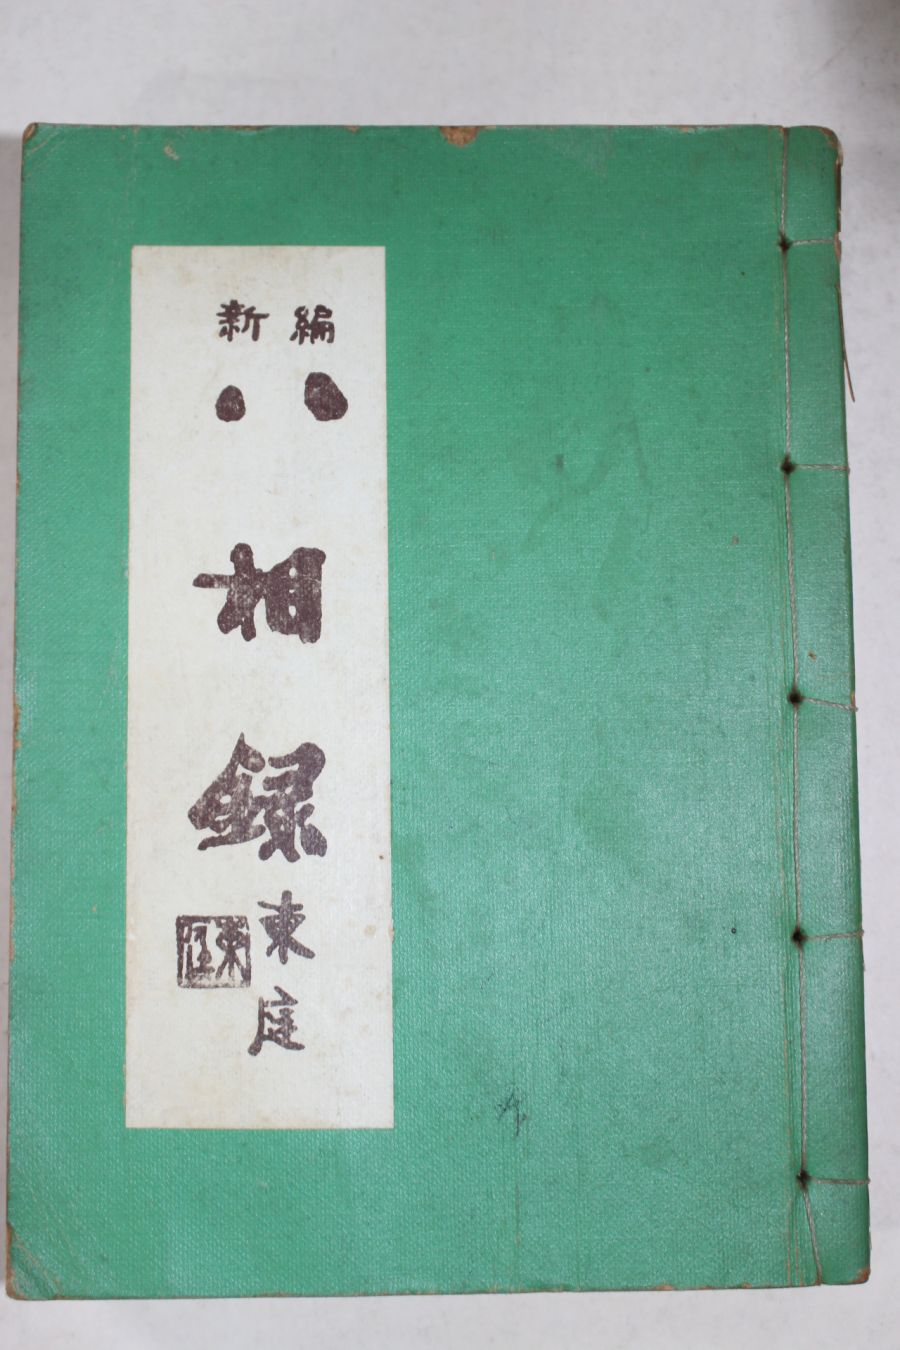 新編
八相録
東庭
東庭